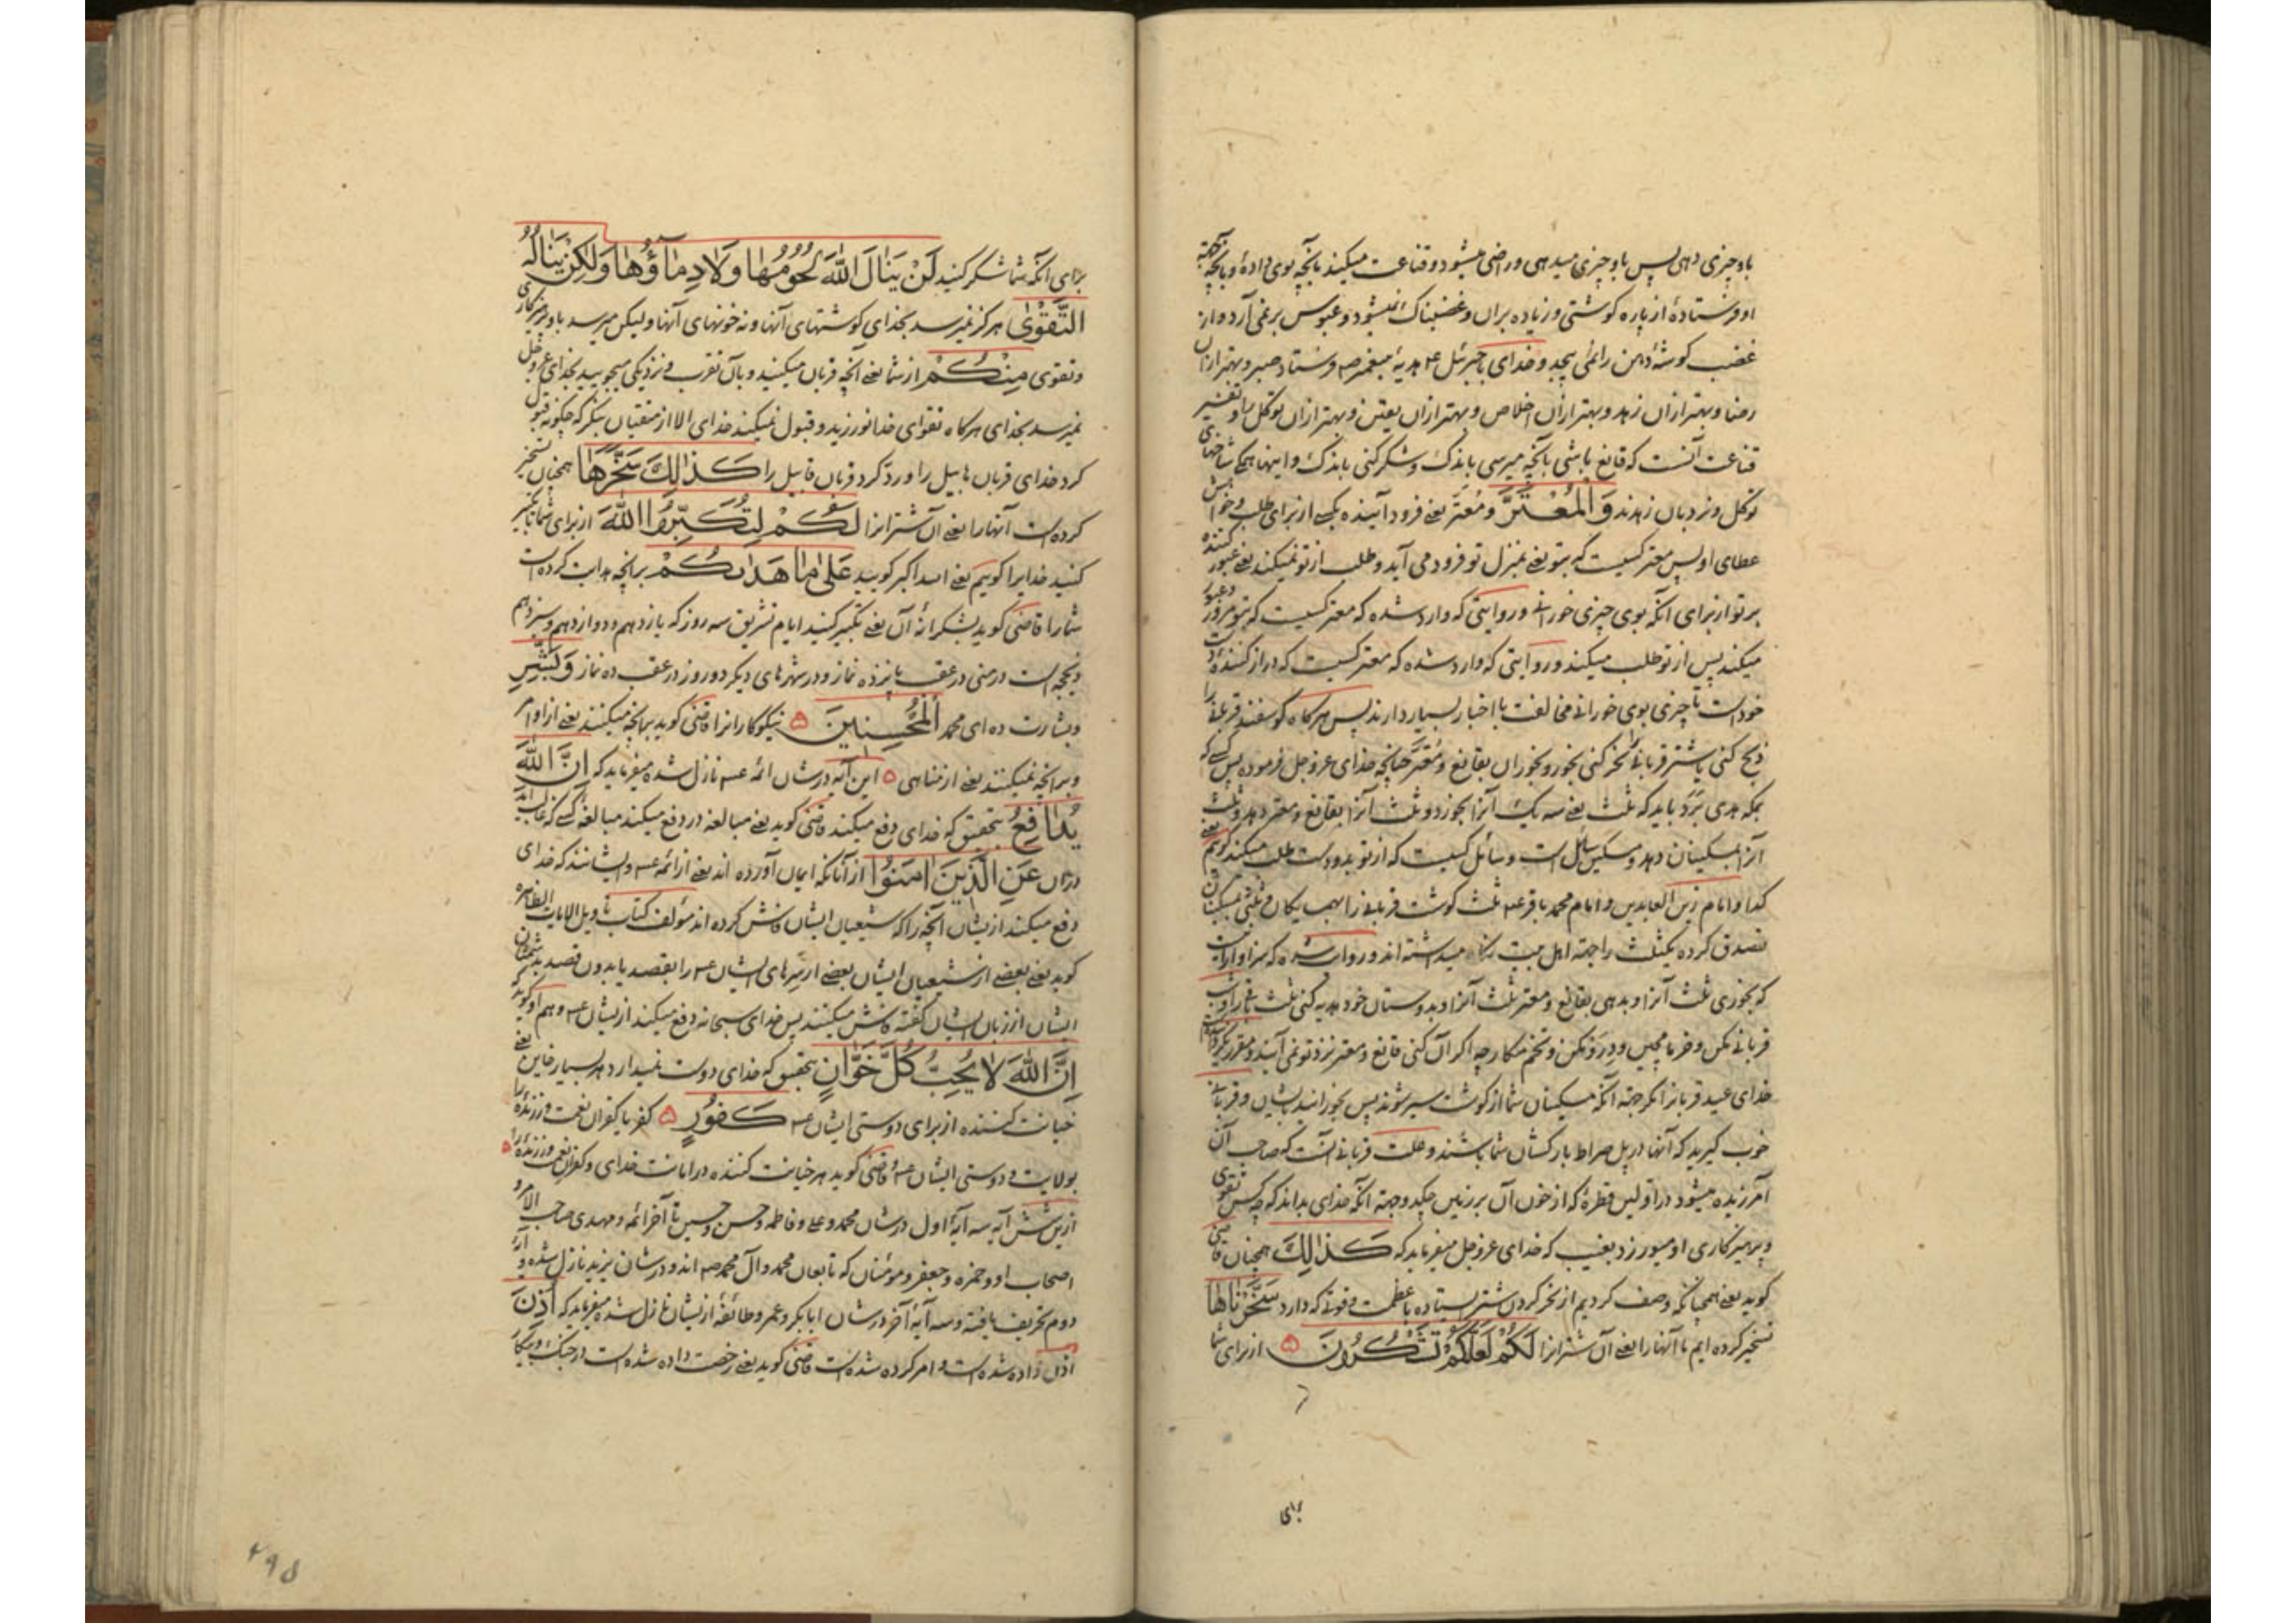 باو چیزی دهی پس باو چیزی میدهی و راضی میشود و قناعت میکند بآنچه بوی داده و بآنچه
او فرستاده از پاره کوشتی و زیاده بران و غضبناک نمیشود و عبوس بر نمی آرد و از
غضب کوشهٔ دهن را نمی پیچد و خدای با جبرئیل ع هدیه پیغمبر ص فرستاد صبر و بهتر ازان
رضا و بهتر ازان زهد و بهتر ازان اخلاص و بهتر ازان یقین و بهتر ازان توکل و تفسیر
قناعت آنست که قانع باشی بآنچه میرسی باندک و شکر کنی باندک و اینها همه شاخهای
توکل و نردبان زهدند وَالْمُعْتَرَّ و مُعْتَر یعنی فرود آینده بکسی از برای طلب و خواهش
عطای او پس معتر کسیست که بتو یعنی بمنزل تو فرود می آید و طلب از تو نمیکند یعنی عبور کننده
بر تو از برای آنکه بوی چیزی خورانی و روایتی که وارد شده که معتر کسیست که بتو مرور و عبور
میکند پس از تو طلب میکند و روایتی که وارد شده که معتر کسیست که دراز کنندهٔ دست
خود است تا چیزی بوی خورانی مخالفت با اخبار بسیار دارند پس هرکاه کوسفند قربانی را
ذبح کنی یا شتر قربانی نحر کنی بخور و بخوران بقانع و مُعْتَر چنانچه خدای عز و جل فرموده پس کسی که
بمکه هدی بَرَد باید که ثلث یعنی سه یک آنرا بخورد و ثلث آنرا بقانع و معتر دهد و ثلث
آنرا بمسکینان دهد و مسکین سائل است و سائل کسیست که از تو بدو دست طلب میکند کویم یعنی
کدا و امام زین العابدین و امام محمد باقر ع ثلث کوشت قربانی را بهمسایکان و ثلثی بمسکینان
تصدق کرده یکثلث را جهة اهل بیت نکاه میداشته اند و روایت شده که سزاوار اینست
که بخوری ثلث آنرا و بدهی بقانع و معتر ثلث آنرا و بدوستان خود هدیه کنی ثلث باقی را و شب
قربانی مکن و خرما مچین و درو مکن و تخم مکار چه اکر آن کنی قانع و معتر نزد تو نمی آیند و مقرر نکرده است
خدای عید قربانرا مکر جهة آنکه مسکینان شما از کوشت سیر شوند پس بخورانید بایشان و قربانی
خوب کیرید که آنها در پل صراط بارکشان شما باشند و علت قربانی آنست که صاحب آن
آمرزیده میشود در اولین قطرهٔ که از خون آن بر زمین چکد و جهة آنکه خدای بداند که چه کس تقوی
و پرهیزکاری او میورزد بغیب که خدای عز و جل میفرماید که كَذٰلِكَ همچنان قاضی
کوید یعنی همچنانکه وصف کردیم از نحر کردن شتر ایستاده با عظمت و قوتی که دارد سَخَّرْنَاهَا
تسخیر کرده ایم ما آنها را یعنی آن شترانرا لَكُمْ لَعَلَّكُمْ تَشْكُرُونَ ۵ از برای شما
برای
برای آنکه شما شکر کنید لَنْ يَنَالَ اللّٰهَ لُحُومُهَا وَلَا دِمَآؤُهَا وَلٰكِنْ يَنَالُهُ
التَّقْوٰى هرکز نمیرسد بخدای کوشتهای آنها و نه خونهای آنها ولیکن میرسد باو پرهیزکاری
و تقوی مِنْكُمْ از شما یعنی آنچه قربان میکنید و بآن تقرب و نزدیکی میجویید بخدای عز و جل
نمیرسد بخدای هرکاه تقوای خدا نورزید و قبول نمیکند خدای الا از متقیان بنکر که چکونه قبول
کرد خدای قربان هابیل را و رد کرد قربان قابیل را كَذٰلِكَ سَخَّرَهَا همچنان تسخیر
کرده است آنها را یعنی آن شترانرا لَكُمْ لِتُكَبِّرُوا اللّٰهَ از برای شما تا تکبیر
کنید خدایرا کویم یعنی الله اکبر کویید عَلٰى مَا هَدٰيكُمْ برانچه هدایت کرده است
شما را قاضی کوید بشکرانهٔ آن یعنی تکبیر کنید ایام تشریق سه روز که یازدهم و دوازدهم و سیزدهم
ذیحجه است در منی در عقب پانزده نماز و در شهرهای دیکر دو روز در عقب ده نماز وَبَشِّرِ
و بشارت ده ای محمد الْمُحْسِنِينَ ۵ نیکوکارانرا قاضی کوید بمانچه میکنند یعنی از اوامر
و برانچه نمیکنند یعنی از مناهی ۵ این آیه در شان ائمه ع نازل شده میفرماید که اِنَّ اللّٰهَ
يُدَافِعُ بتحقیق که خدای دفع میکند قاضی کوید یعنی مبالغه در دفع میکند مبالغهٔ کسی که غالب آید
دران عَنِ الَّذِينَ اٰمَنُوا از آنانکه ایمان آورده اند یعنی از ائمه ع و ایشانند که خدای
دفع میکند از یشان آنچه را که شیعیان ایشان فاش کرده اند مؤلف کتاب تاویل الایات الظاهره
کوید یعنی بعضی از شیعیان ایشان بعضی از سرهای ایشان ع را بقصد یا بدون قصد بدشمنان
ایشان از زبان ایشان کفته فاش میکنند پس خدای سبحانه دفع میکند از یشان ع و هم او کوید که
اِنَّ اللّٰهَ لَا يُحِبُّ كُلَّ خَوَّانٍ بتحقیق که خدای دوست نمیدارد هر بسیار خاین یعنی
خیانت کننده از برای دوستی ایشان ع كَفُورٍ ۵ کفر یا کفران نعمت ورزندهٔ را
بولایت و دوستی ایشان ع قاضی کوید هر خیانت کننده در امانت خدای و کفران نعمت ورزندهٔ را ۵
ازین شش آیه سه آیهٔ اول در شان محمد و علی و فاطمه و حسن و حسین تا آخر ائمه و مهدی صاحب الامر و
اصحاب او و حمزه و جعفر و مؤمنان که تابعان محمد و آل محمد ص اند و در شان یزید نازل شده و آیهٔ
دوم تحریف یافته و سه آیهٔ آخر در شان ابابکر و عمر و طائفهٔ از یشان نازل شده میفرماید که اُذِنَ
اذن داده شده است و امر کرده شده است قاضی کوید یعنی رخصت داده شده است در جنک و پیکار
۴۹۵